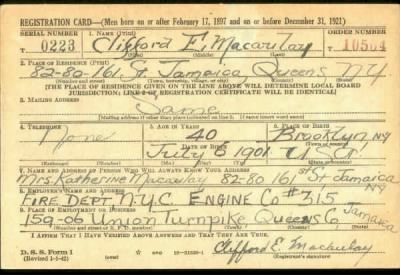 REGISTRATION CARD—(Men born on or after February 17, 1897 and on or before December 31, 1921)
SERIAL NUMBER 1. NAME (Print) ORDER NUMBER
T 0223 Clifford E. Macaulay 10504
2. PLACE OF RESIDENCE (Print)
82-80-161 St Jamaica, Queens, N.Y.
(Number and street) (Town, township, village, or city) (County) (State)
[THE PLACE OF RESIDENCE GIVEN ON THE LINE ABOVE WILL DETERMINE LOCAL BOARD
JURISDICTION; LINE 2 OF REGISTRATION CERTIFICATE WILL BE IDENTICAL]
3. MAILING ADDRESS
Same
(Mailing address if other than place indicated on line 2. If same insert word same)
4. TELEPHONE 5. AGE IN YEARS 6. PLACE OF BIRTH
none 40 Brooklyn, NY
DATE OF BIRTH
July 1901 U.S.
7. NAME AND ADDRESS OF PERSON WHO WILL ALWAYS KNOW YOUR ADDRESS
Mrs. Katherine Macaulay 82-80 161 St Jamaica NY
8. EMPLOYER'S NAME AND ADDRESS
FIRE DEPT. N.Y.C. ENGINE Co # 315
9. PLACE OF EMPLOYMENT OR BUSINESS
159-06 Union Turnpike Queens Co Jamaica
(Number and street or R. F. D. number) (Town) (County) (State)
I AFFIRM THAT I HAVE VERIFIED ABOVE ANSWERS AND THAT THEY ARE TRUE.
D. S. S. Form 1 Clifford E. Macaulay
(Revised 1-5-42) (over)